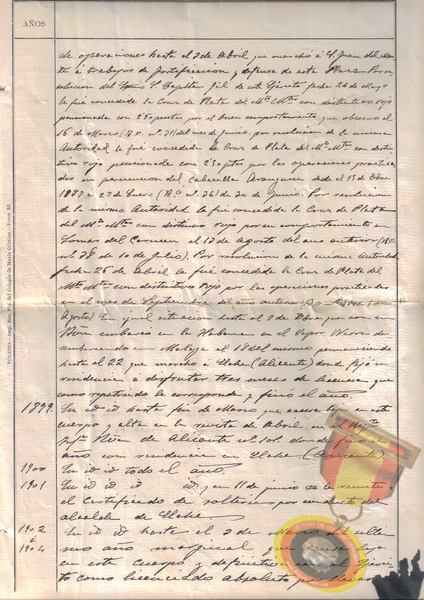 AÑOS
de operaciones hasta el 7 de Abril que marchó a S. Juan del
te a trabajos de fortificacion y defensa de esta Plaza. Por re
solucion del Sr. Capitan Gral de este Ejército fecha 24 de Mayo
le fué concedida la Cruz de Plata del Mto. Mtar. con distintivo rojo
pensionada con 2'50 pesetas por el buen comportamiento que observó el
16 de Marzo (D.O. nº 31) del mes de junio, por resolucion de la misma
Autoridad le fué concedida la Cruz de Plata del Mto. Mtar. con distin
tivo rojo pensionada con 2'50 ptas por las operaciones practica
das en persecucion del cabecilla Aranguren desde el 15 de Dbre
1897 a 27 de Enero (D.O. nº 36) de 30 de junio. Por resolucion
de la misma Autoridad le fué concedida la Cruz de Plata
del Mto. Mtar. con distintivo rojo por su comportamiento en
Lomas del Carmen el 17 de Agosto del año anterior (D.O.
nº 38 de 10 de julio). Por resolucion de la misma Autoridad
fecha 26 de Abril le fué concedida la Cruz de Plata del
Mto. Mtar. con distintivo rojo por las operaciones practicadas
en el mes de Septiembre del año anterior (D.O.
Agosto) En igual situacion hasta el 7 de Dbre que con su
Btón embarcó en la Habana en el Vapor
sembarcando en Malaga el 18 del mismo permaneciendo
hasta el 22 que marchó a Elche (Alicante) donde fijó su
residencia a disfrutar tres meses de licencia que
como repatriado le corresponde y finó el año.
1899. En id id hasta fin de Marzo que causó baja en este
cuerpo y alta en la revista de Abril en el
Rva de Alicante nº 101 donde finó el
año con residencia en Elche (Alicante)
1900 En id id todo el año.
1901 En id id id y en 11 de junio se le remitió
el Certificado de soltería por conducto del
alcalde de Elche
1902 á 1904 En id id hasta el 2 de Marzo del ultimo
año marginal que causó baja
en este cuerpo y definitiva en el Ejérci
to como licenciado absoluto por
TOLEDO.—Imp. Rev. Tip. del Colegio de María Cristina.—Form. 55.